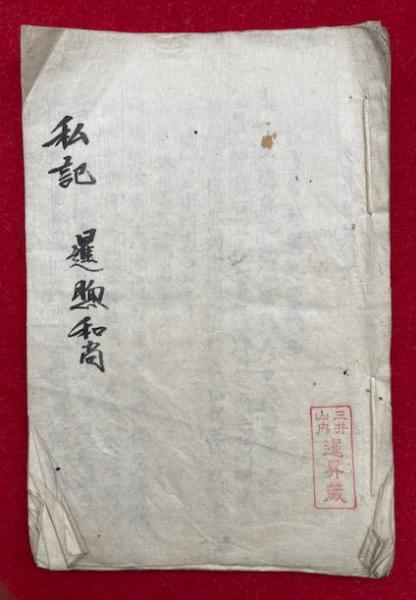 私記
暹煦和尚
三井
山内
暹昇蔵